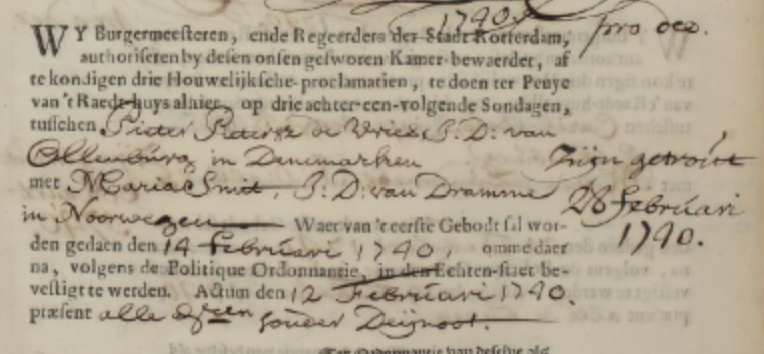 1740.
pro deo.
WY Burgermeesteren, ende Regeerders der Stadt Rotterdam,
authoriseren by desen onsen gesworen Kamer-bewaerder, af
te kondigen drie Houwelijksche-proclamatien, te doen ter Peuye
van 't Raedt-huys alhier, op drie achter-een-volgende Sondagen,
tusschen Pieter Pietersz de Vries, J: D: van
Ollenburg in Denemarken
met Maria Smit, J: D: van Dramme
in Noorwegen Waer van 't eerste Gebodt sal wor-
den gedaen den 14 Februari 1740, omme daer
na, volgens de Politique Ordonnantie, in den Echten-staet be-
vestigt te werden. Actum den 12 Februari 1740.
præsent alle sonder
Zijn getrout
28 februari
1740.